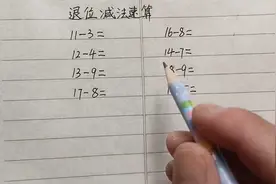 退位减法速算
11-3=
12-4=
13-9=
17-8=
16-8=
14-7=
8-9=
=